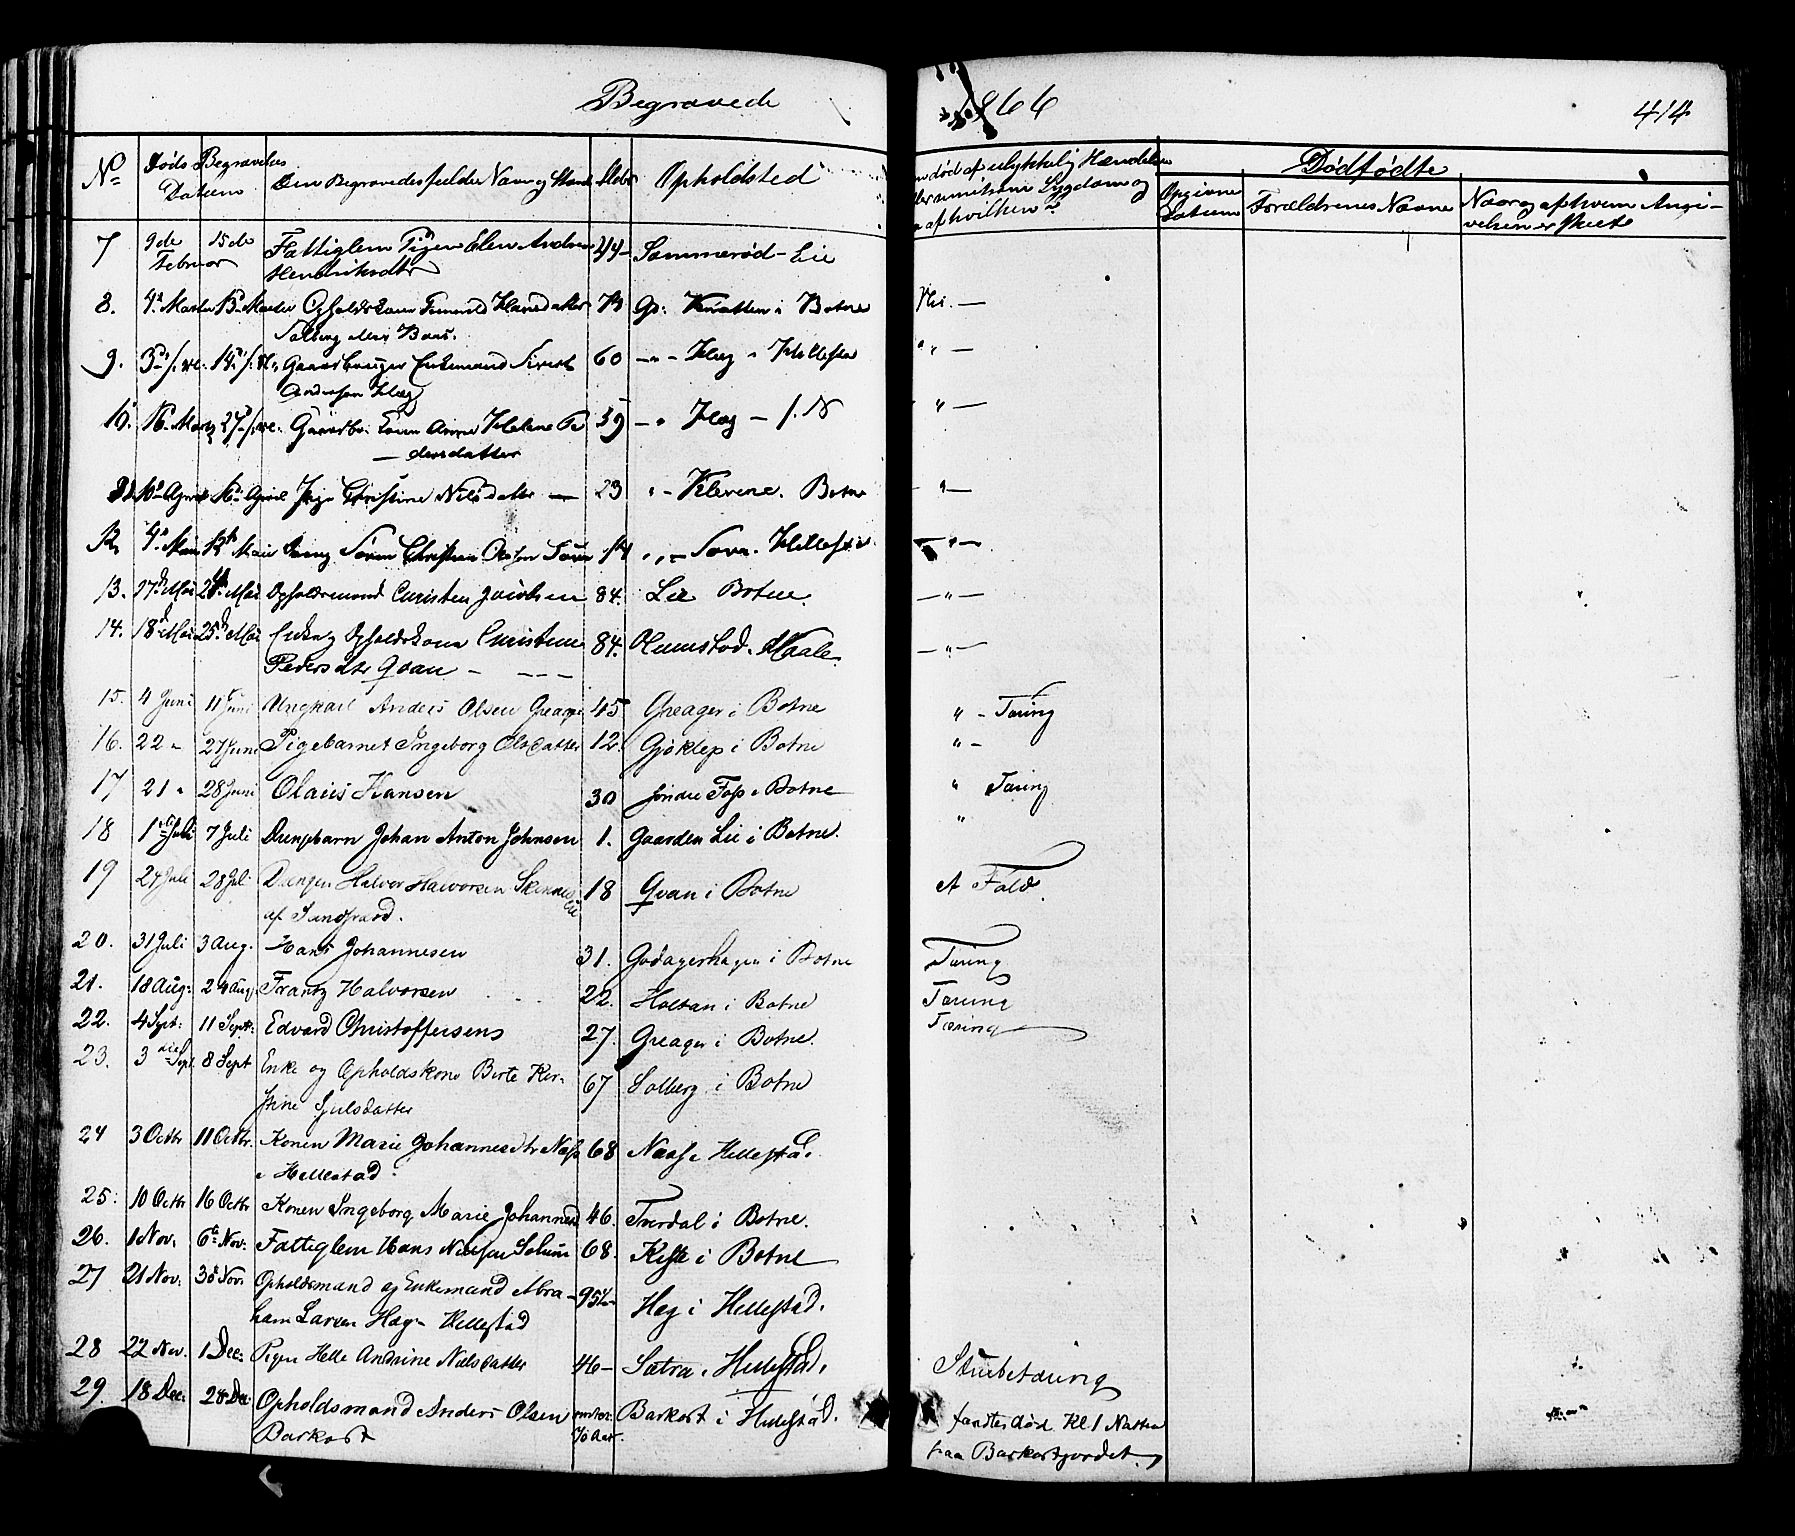 Begravede
1866
414
No
Døds Begravelses
Datum
Den Begravedes fulde Navn og Stand
Alder
Opholdsted
død af ulykkelig Hændelse
Sygdom og
af hvilken?
Dødfødte
Angivne
Datum
Forældrenes Navne
Naar og af hvem Angi-
velsen er skeet
7 9de 15de Fattiglem Pigen Elen Andrea 44- Sommerød - Lie
Februar Hendriksdtr
8. 4de Marts 13. Marts Opholdskone Hansdatter Gp: Knatten i Botne
Solberg
9. 14 Gaardbruger Enkemand Sivert 60 - Hæg - Hillestad
Andersen Hæg
10. 16. Marts 27 Gaardbr: Kone Anne Helene Pe 39 - Hæg -
dersdatter
11. April April Pige Christine Nilsdatter - 23 - Klevene. Botne
12. 4de Mai 12te Mai Søren Christian Olsen 14 Hillestad
13. 17de Mai 24de Mai Opholdsmand Christen Jacobsen 84. Lie Botne.
14. 18de Mai 25de Mai Enke og Opholdskone Christine 84. Olumstad. Vaale
Pedersdtr Qvan -
15. 4 Juni 11 Juni Ungkarl Anders Olsen Greager 45 Greager i Botne " - Tæring
16. 22 " 27 Juni Pigebarnet Ingeborg Olsdatter 12. Gjøklep i Botne " -
17 21 " 28 Juni Olaus Hansen 30 søndre Foss i Botne " Tæring
18 1ste Juli 7 Juli Drengebarn Johan Anton Johnsen 1. Gaarden Lie i Botne. "
19 24 Juli 28 Juli Drengen Halvor Halvorsen 18 Qvan i Botne Et Fald.
af Sandsværd.
20. 31 Juli 3 Aug. Hans Johannesen 31. Godagerhagen i Botne Tæring
21. 18 Aug: 24 Aug. Frantz Halvorsen 22. Holtan i Botne Tæring
22. 4 Sept: 11 Sept: Edvard Christoffersens 27. Greager i Botne. Tæring
23. 3die Sept 8 Sept Enke og Opholdskone Berte Kir- 67 Solberg i Botne
stine Sjulsdatter
24 3 Octbr 11 Octbr. Konen Marie Johannesdtr Næss 68 Næss i Hillestad.
i Hillestad.
25. 10 Octbr 16 Octbr Konen Ingeborg Marie Johannesd 46. Tverdal i Botne.
26. 1 Nov. 6te Nov: Fattiglem Hans Nielsen Solum 68. Keste i Botne
27 21 Nov: 30 Nov: Opholdsmand og Enkemand Abra- 95½ Hæg i Hillestad.
ham Larsen Hæg - Hillestad
28 22 Nov. 1 Dec: Pigen Helle Andrine Nilsdatter 46- Sætra i Hillestad. Strubetæring
29. 18 Dec: 28 Dec: Opholdsmand Anders Olsen omtr: Barkost i Hillestad. fandtes død Kl 1 Natten
Barkost 70 Aar. paa Barkostjordet.